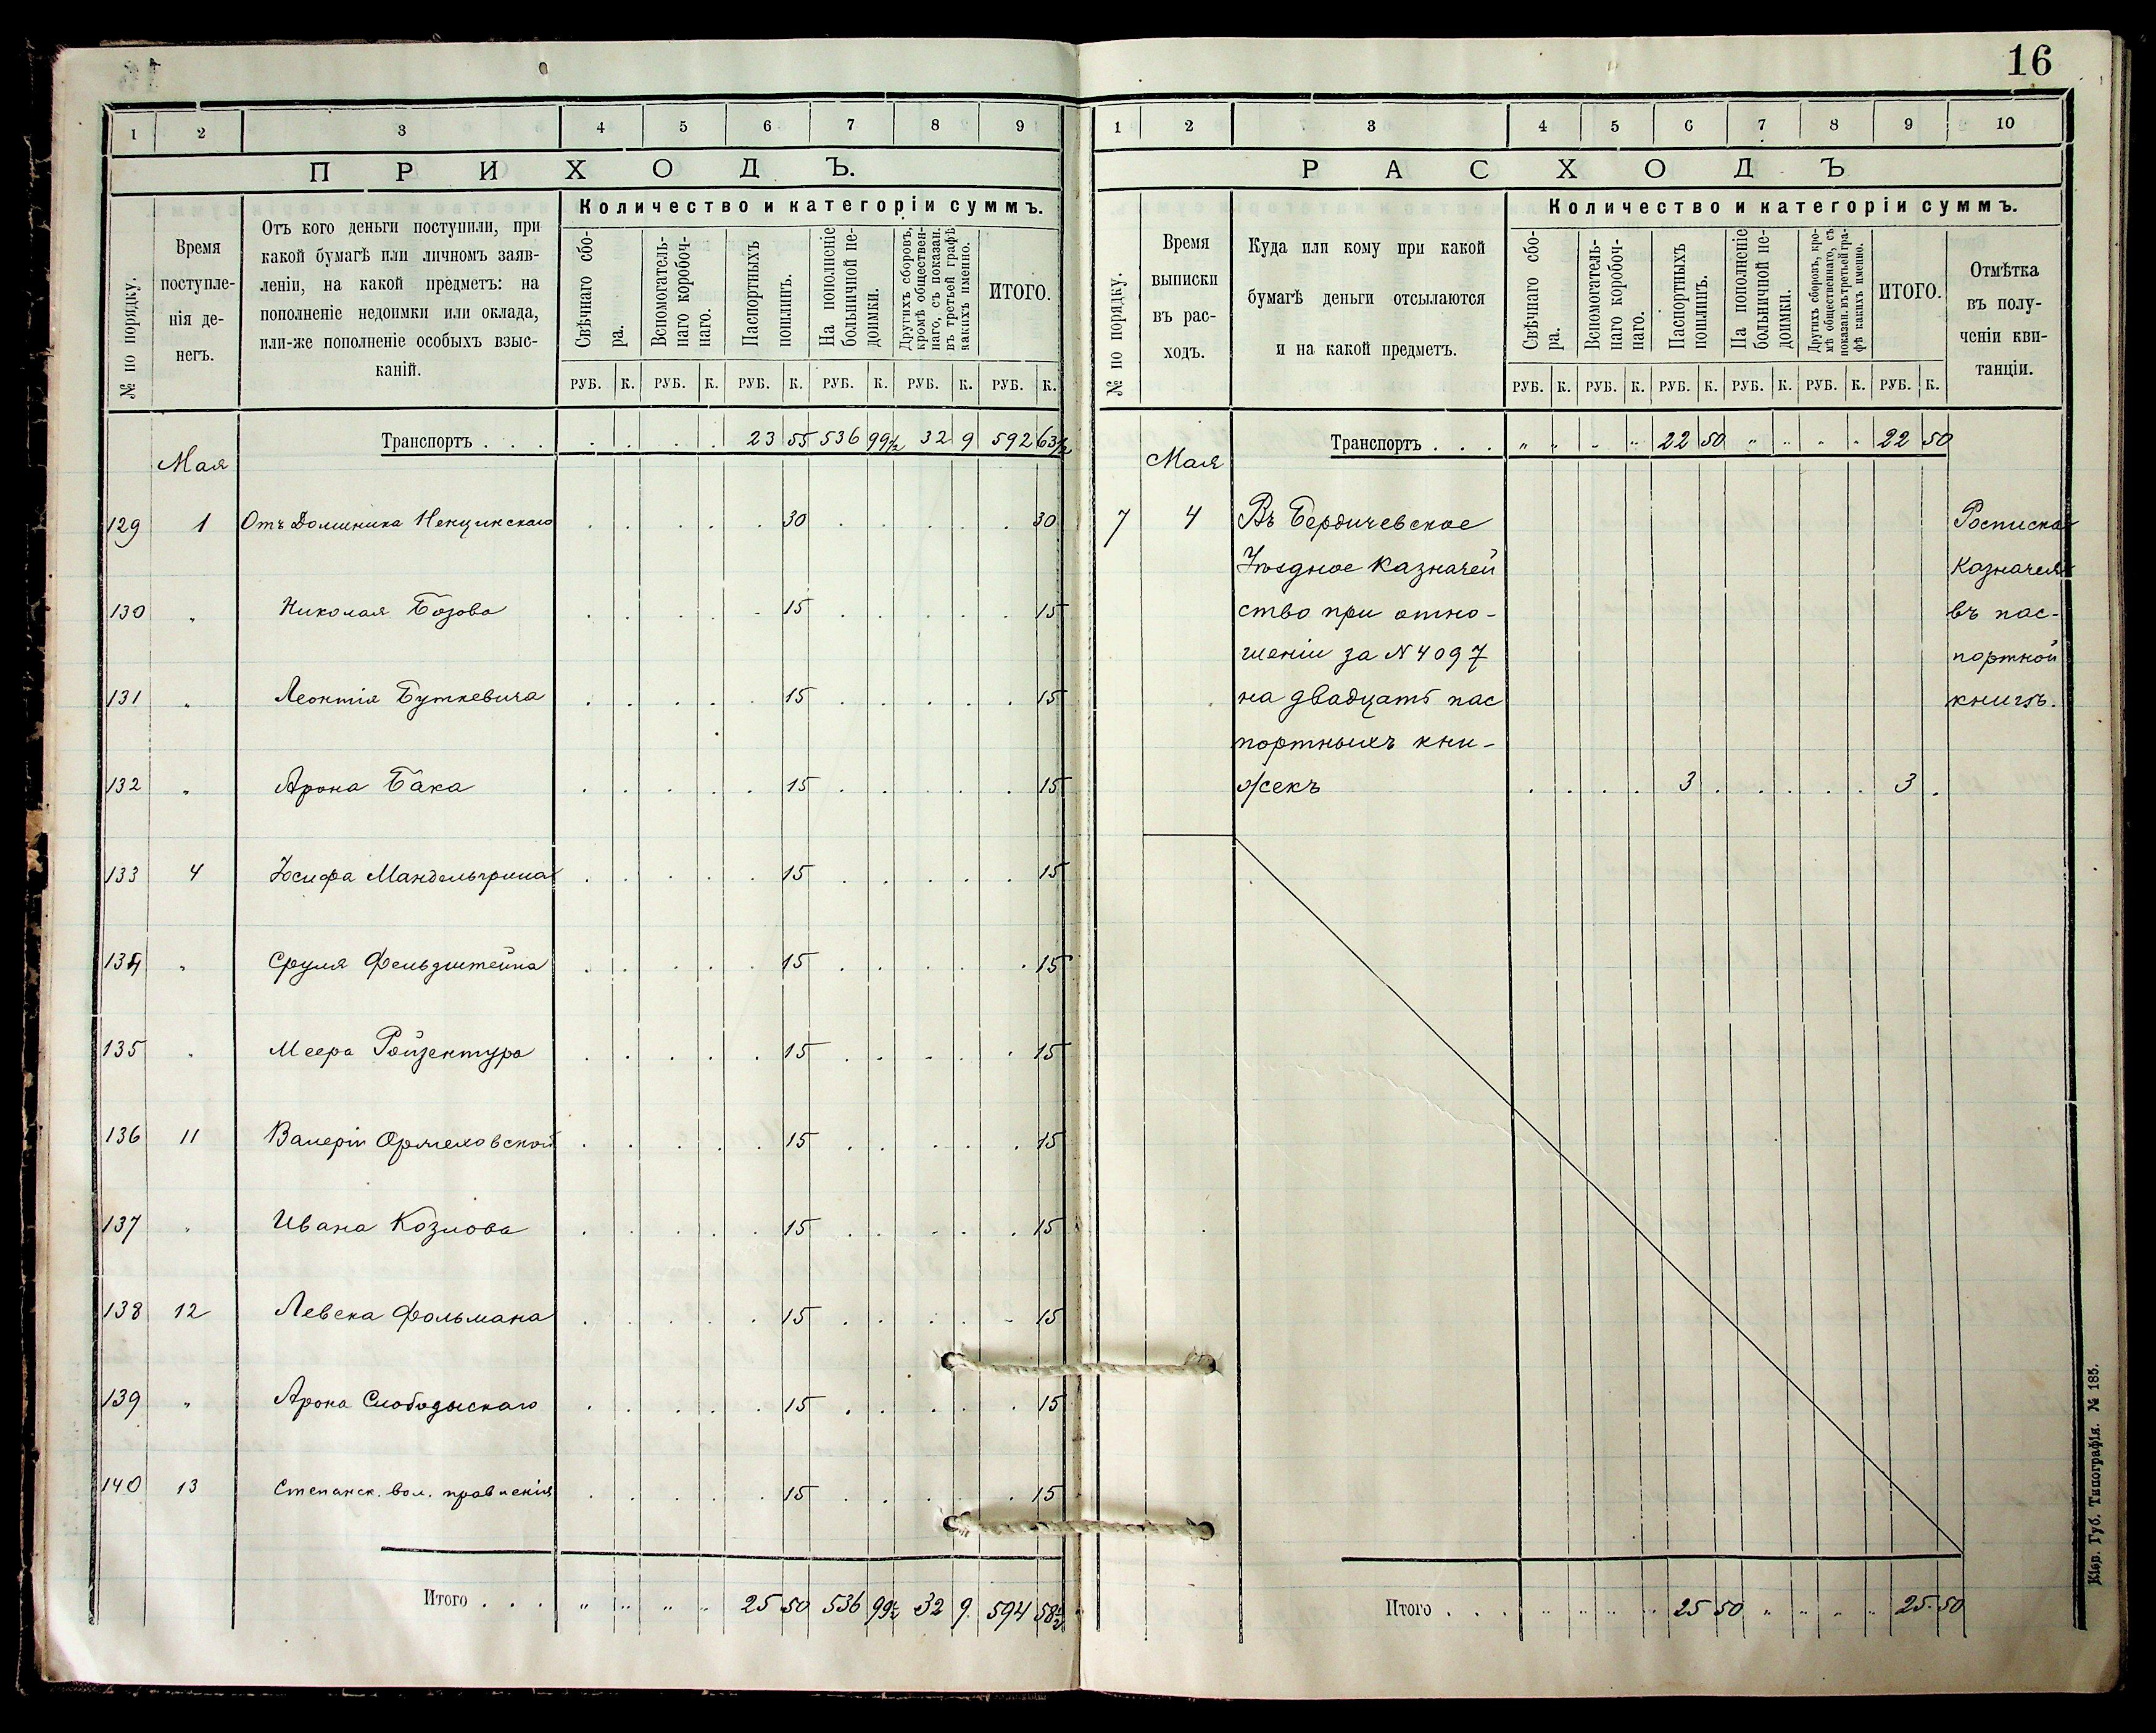 16
1 2 3 4 5 6 7 8 9
ПРИХОДЪ.
Количество и категоріи суммъ.
№ по порядку.
Время поступле-
нія де-
негъ.
Отъ кого деньги поступили, при
какой бумагѣ или личномъ заяв-
леніи, на какой предметъ: на
пополненіе недоимки или оклада,
или-же пополненіе особыхъ взыс-
каній.
Свѣчнаго сбо-
ра.
Вспомогатель-
наго коробоч-
наго.
Паспортныхъ
пошлинъ.
На пополненіе
больничной не-
доимки.
Другихъ сборовъ,
кромѣ обществен-
наго, съ показан.
въ третьей графѣ
какихъ именно.
ИТОГО.
РУБ. К. РУБ. К. РУБ. К. РУБ. К. РУБ. К. РУБ. К.
Транспортъ . . . 23 55 536 99½ 32 9 592 63½
Мая
129 1 Отъ Доминика Ненцинскаго 30 30
130 " Николая Бозова 15 15
131 " Леонтія Буткевича 15 15
132 " Арона Бака 15 15
133 4 Іосифа Мандельгрина 15 15
134 " Сруля Фельдштейна 15 15
135 " Меера Ройзентура 15 15
136 11 Валеріи Оржеховской 15 15
137 " Ивана Козлова 15 15
138 12 Левека Фольмана 15 15
139 " Арона Слободыскаго 15 15
140 13 Степанск. вол. правленія 15 15
Итого . . . " " " " 25 50 536 99½ 32 9 594 58½
1 2 3 4 5 6 7 8 9 10
РАСХОДЪ
Количество и категоріи суммъ.
№ по порядку.
Время
выписки
въ рас-
ходъ.
Куда или кому при какой
бумагѣ деньги отсылаются
и на какой предметъ.
Свѣчнаго сбо-
ра.
Вспомогатель-
наго коробоч-
наго.
Паспортныхъ
пошлинъ.
На пополненіе
больничной не-
доимки.
Другихъ сборовъ, кро-
мѣ общественнаго, съ
показан. въ третьей гра-
фѣ какихъ именно.
ИТОГО.
Отмѣтка
въ полу-
ченіи кви-
танціи.
РУБ. К. РУБ. К. РУБ. К. РУБ. К. РУБ. К. РУБ. К.
Транспортъ . . . " " " " 22 50 " " " " 22 50
Мая
7 4 Въ Бердичевское Росписка
Уѣздное Казначей Казначея
ство при отно- въ пас-
шеніи за N 4097 портной
на двадцать пас книгѣ.
портныхъ кни-
жекъ 3 3
Итого . . . " " " " 25 50 " " " " 25 50
Кіев. Губ. Типографія. № 185.